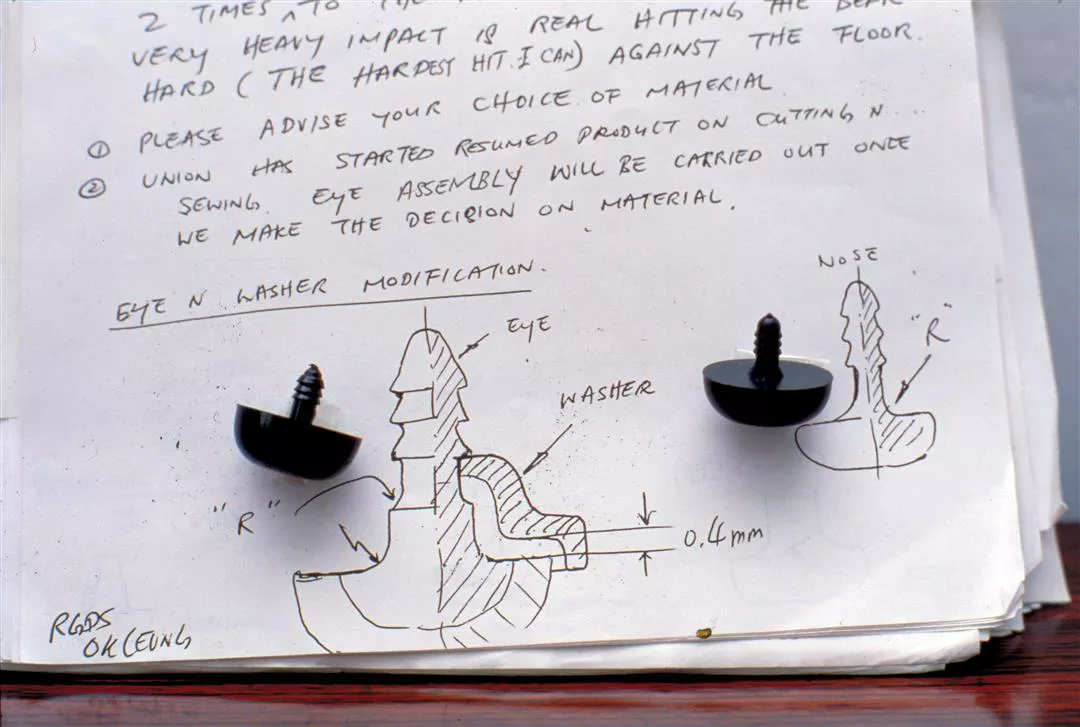 2 TIMES TO THE
VERY HEAVY IMPACT IS REAL HITTING THE BEAR
HARD (THE HARDEST HIT I CAN) AGAINST THE FLOOR.
① PLEASE ADVISE YOUR CHOICE OF MATERIAL
② UNION HAS STARTED RESUMED PRODUCT ON CUTTING N....
SEWING. EYE ASSEMBLY WILL BE CARRIED OUT ONCE
WE MAKE THE DECISION ON MATERIAL.
EYE N WASHER MODIFICATION.
NOSE
EYE
"R"
WASHER
"R"
0.4mm
RGDS
OK LEUNG